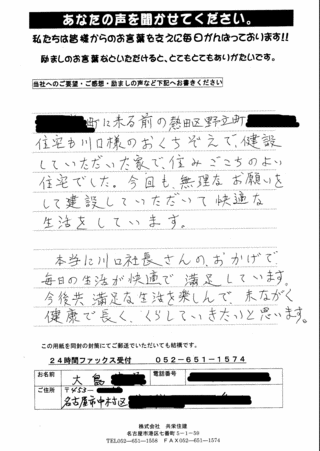 あなたの声を聞かせてください。
私たちは皆様からのお言葉を支えに毎日がんばっております!!
励ましのお言葉をいただけると、とてもとてもありがたいです。
当社へのご要望・ご感想・励ましの声など下記へお書きください
町に来る前の熱田区野立町
住宅も川口様のおくちぞえで、建設
していただいた家で、住みごこちのよい
住宅でした。今回も、無理な お願いを
して建設していただいて快適な
生活をしています。
本当に川口社長さんの、おかげで、
毎日の生活が快適で 満足しています。
今後共 満足な生活を楽しんで、末ながく
健康で長く、くらしていきたいと思います。
この用紙を同封の封筒にてご郵送でいただいても結構です。
24時間ファックス受付 052-651-1574
お名前 大島
ご住所 〒453-
名古屋市中村区
株式会社 共栄住建
名古屋市港区七番町5-1-59
TEL052-651-1558 FAX052-651-1574